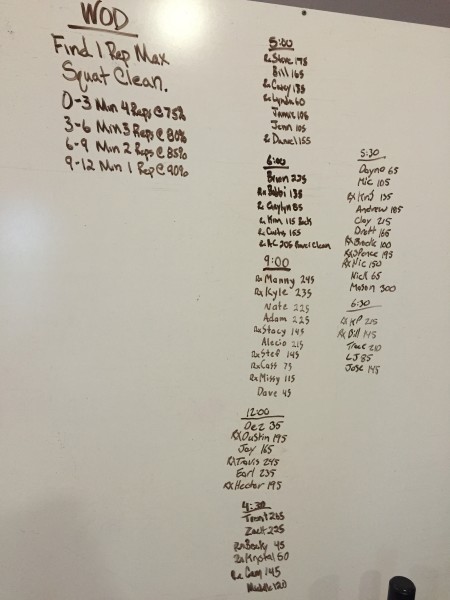 WOD
Find 1 Rep Max
Squat Clean.
0-3 Min 4 Reps @ 75%
3-6 Min 3 Reps @ 80%
6-9 Min 2 Reps @ 85%
9-12 Min 1 Rep @ 90%
5:00
Rx Steve 175
Bill 165
Rx Corey 135
Rx Lynda 60
Jammie 105
Jenn 105
Rx Daniel 155
6:00
Brian 225
Rx Bobbi 135
Rx Caylyn 85
Rx Kim 115
Rx Curtis 155
Rx KC 205 Clean
9:00
Rx Manny 245
Rx Kyle 235
Nate 225
Adam 225
Rx Stacy 145
Alecio 215
Rx Stef 145
Rx Cass 75
Rx Missy 115
Dave 45
12:00
Dez 35
RX Dustin 195
Jay 165
RX Travis 245
Earl 235
RX Hector 195
4:30
Trent 265
Zack 225
Rx Becky 45
Rx Krystal 50
Rx Cam 145
Maddie 120
5:30
Dayna 65
Mic 105
RX Kris 135
Andrew 185
Clay 215
Drott 165
RX Brook 100
RX Spence 195
RX Nic 150
Nick 65
Mason 300
6:30
RX KP 215
RX Bill 145
Trace 210
LJ 85
Jose 145